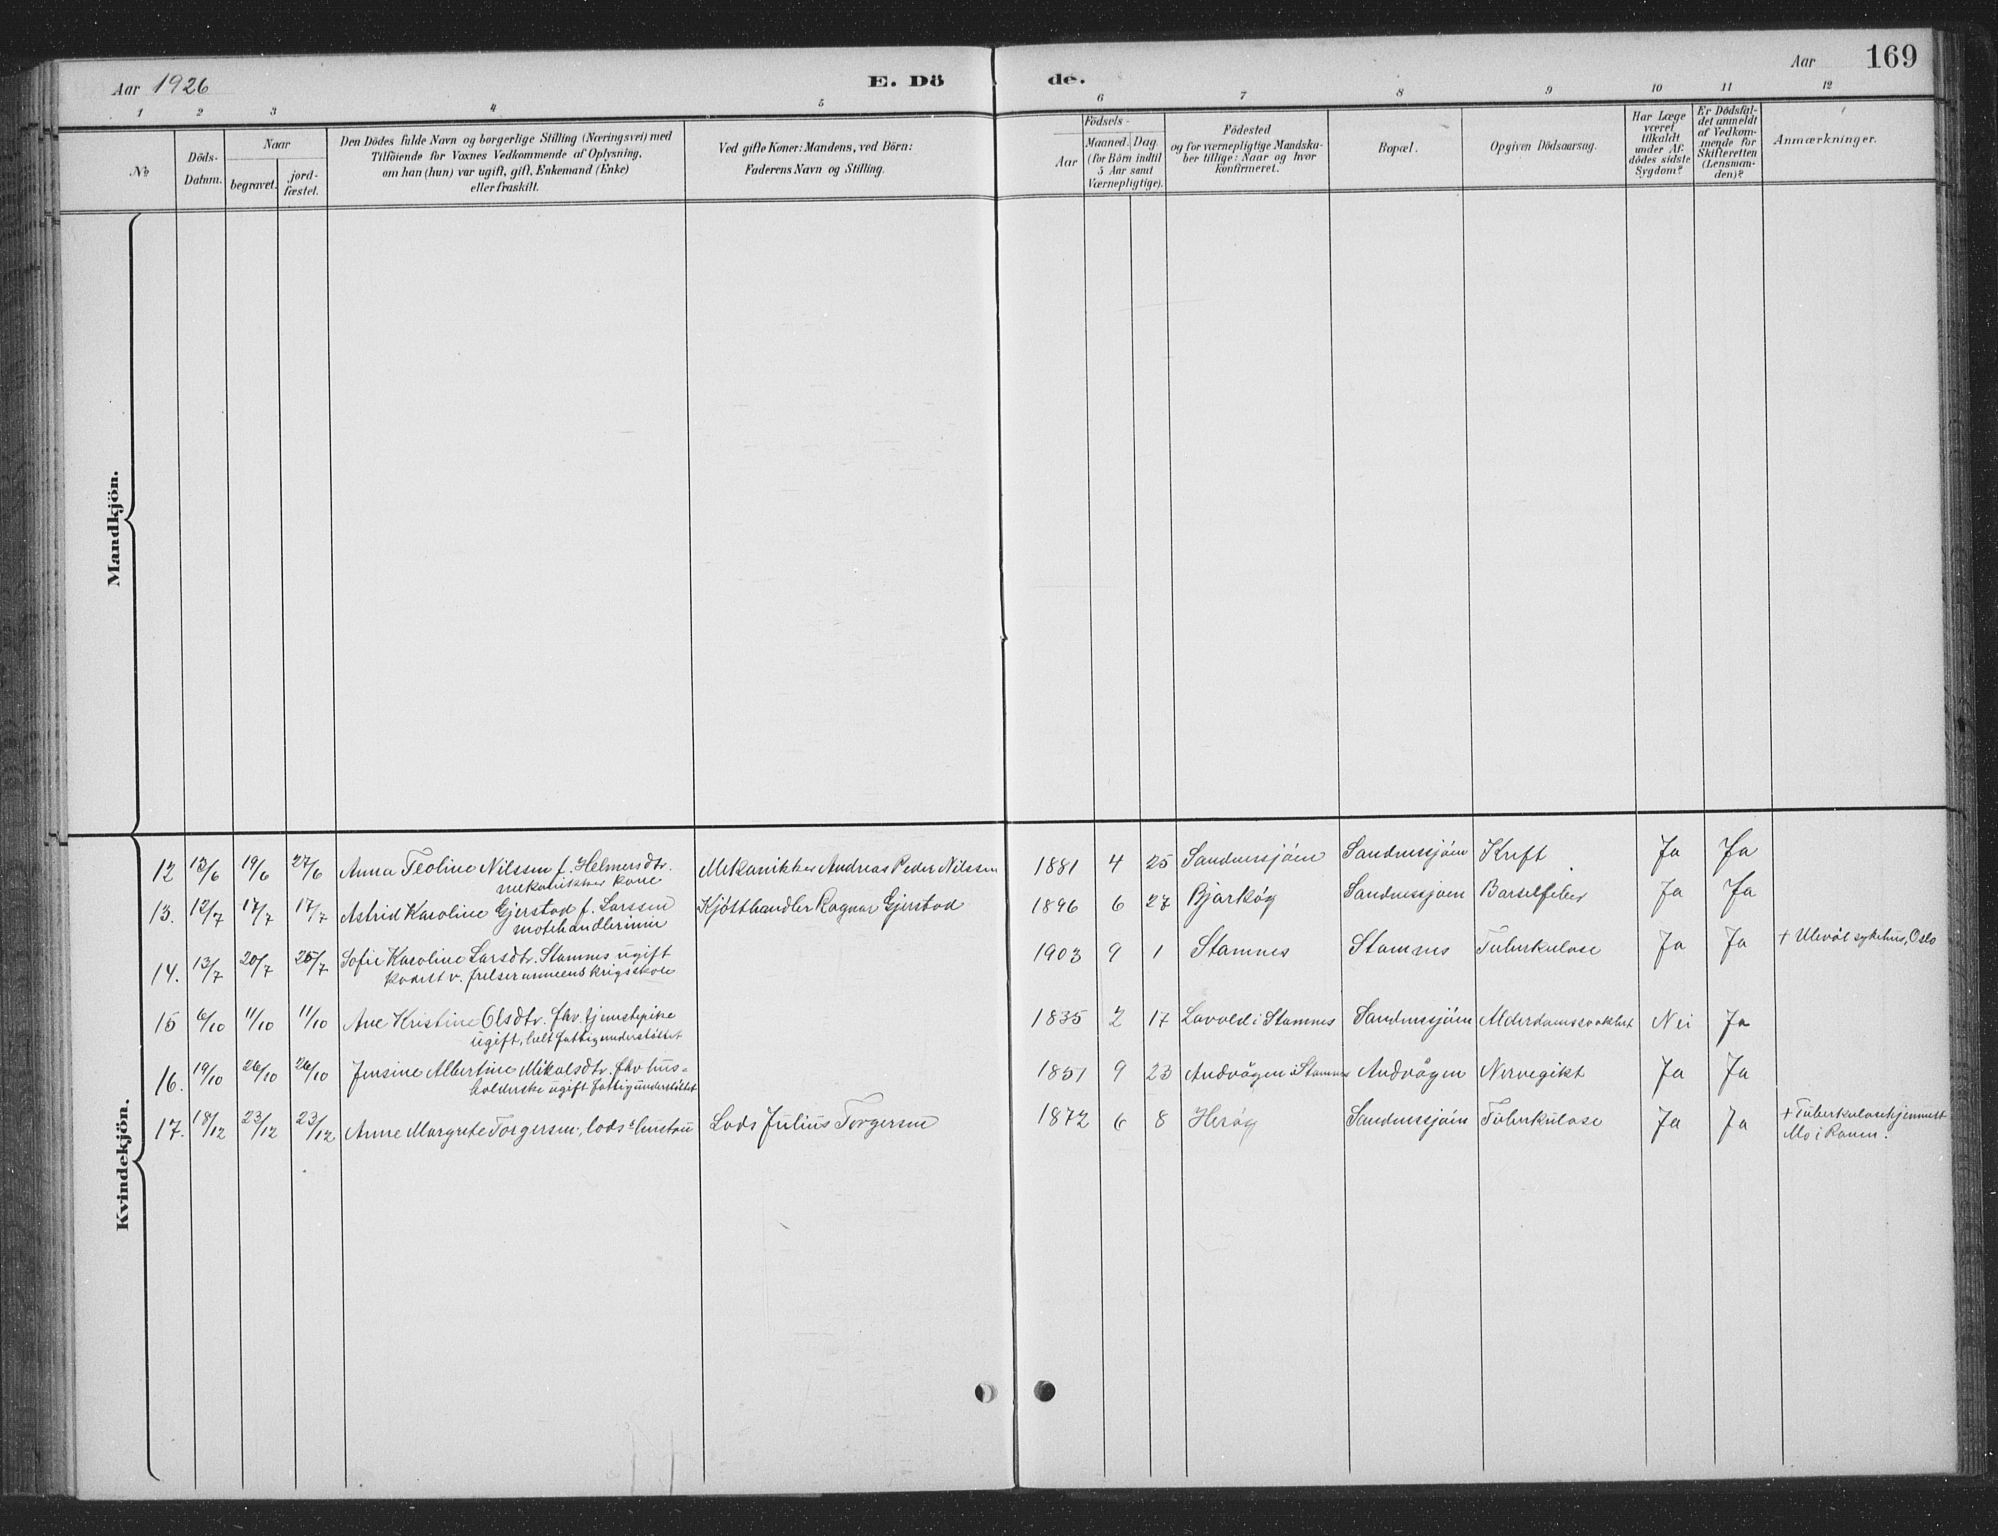 Aar 1926
E. Dö
de.
Aar
169
1 2 3 4 5 6 7 8 9 10 11 12
No
Döds-
Datum.
Naar
begravet.
jord-
fæstet.
Den Dödes fulde Navn og borgerlige Stilling (Næringsvei) med
Tilföiende for Voxnes Vedkommende af Oplysning,
om han (hun) var ugift, gift, Enkemand (Enke)
eller fraskilt.
Ved gifte Koner: Mandens, ved Börn:
Faderens Navn og Stilling.
Födsels-
Aar
Maaned. Dag.
(for Börn indtil
5 Aar samt
Værnepligtige).
Födested
og for værnepligtige Mandska-
ber tillige: Naar og hvor
konfirmeret.
Bopæl.
Opgiven Dödsaarsag.
Har Læge
været
tilkaldt
under Af-
dödes sidste
Sygdom?
Er Dödsfal-
det anmeldt
af Vedkom-
mende for
Skifteretten
(Lensman-
den)?
Anmærkninger.
Mandkjön.
Kvindekjön.
12 13/6 19/6 27/6 Anna Teoline Nilssen f. Helmersdtr. Mekanikker Andreas Peder Nilssen 1881 4 25 Sandnessjöen Sandnessjöen Kreft Ja Ja
mekanikker kone
13. 12/7 17/7 17/7 Astrid Karoline Gjerstad f. Larssen Kjötthandler Ragnar Gjerstad 1896 6 27 Bjarköy Sandnessjöen Barselfeber Ja Ja
motehandlerinne
14. 13/7 20/7 25/7 Sofie Karoline Larsdtr. Stamnes ugift 1903 9 1 Stamnes Stamnes Tuberkulose Ja Ja + Ulevöl sykehus, Oslo
v. frelsesarmeens krigsskole
15 6/10 11/10 11/10 Ane Kristine Olsdtr. fhv. tjenestepike 1835 2 17 Lavold i Stamnes Sandnessjöen Alderdomssvakhet Nei Ja
ugift, helt fattigunderstöttet
16. 19/10 26/10 26/10 Jensine Albertine Mikalsdtr. fhv hus- 1851 9 23 Andvågen i Stamnes Andvågen Nervegikt Ja Ja
holderske ugift fattigunderstöttet
17. 18/12 23/12 23/12 Anne Margrete Torgersen, lods's hustru Lods Julius Torgersen 1872 6 8 Heröy Sandnessjöen Tuberkulose Ja Ja + Tuberkulosehjemmet
Mo i Ranen.